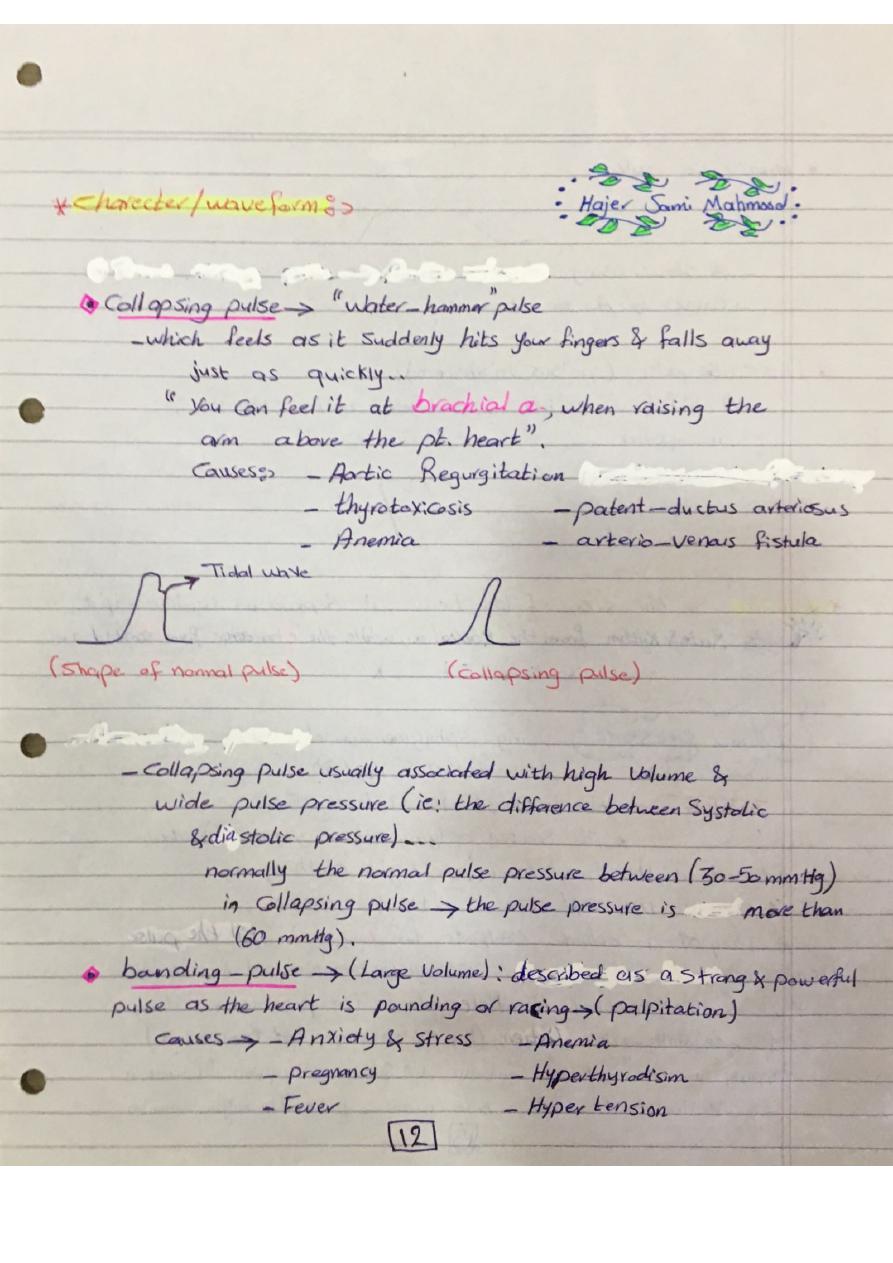 * Charecter/waveform:>
Hajer Sami Mahmood
Collapsing pulse → "water-hammer" pulse
- which feels as it suddenly hits your fingers & falls away
just as quickly..
"you can feel it at brachial a., when raising the
arm above the pt. heart".
Causes:> - Aortic Regurgitation
- thyrotoxicosis - patent-ductus arteriosus
- Anemia - arterio-venous fistula
Tidal wave
(shape of normal pulse) (collapsing pulse)
- Collapsing pulse usually associated with high volume &
wide pulse pressure (ie: the difference between Systolic
& diastolic pressure)....
normally the normal pulse pressure between (30-50 mmHg)
in Collapsing pulse → the pulse pressure is more than
(60 mmHg).
banding-pulse → (Large Volume): described as a strong & powerful
pulse as the heart is pounding or racing → (palpitation)
Causes → - Anxiety & stress - Anemia
- pregnancy - Hyperthyrodisim
- Fever - Hyper tension
12